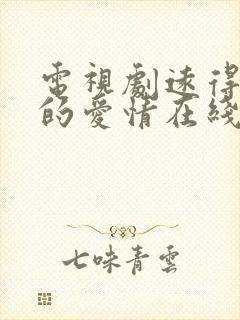 電視劇速得
的愛情在綫
七味青雲